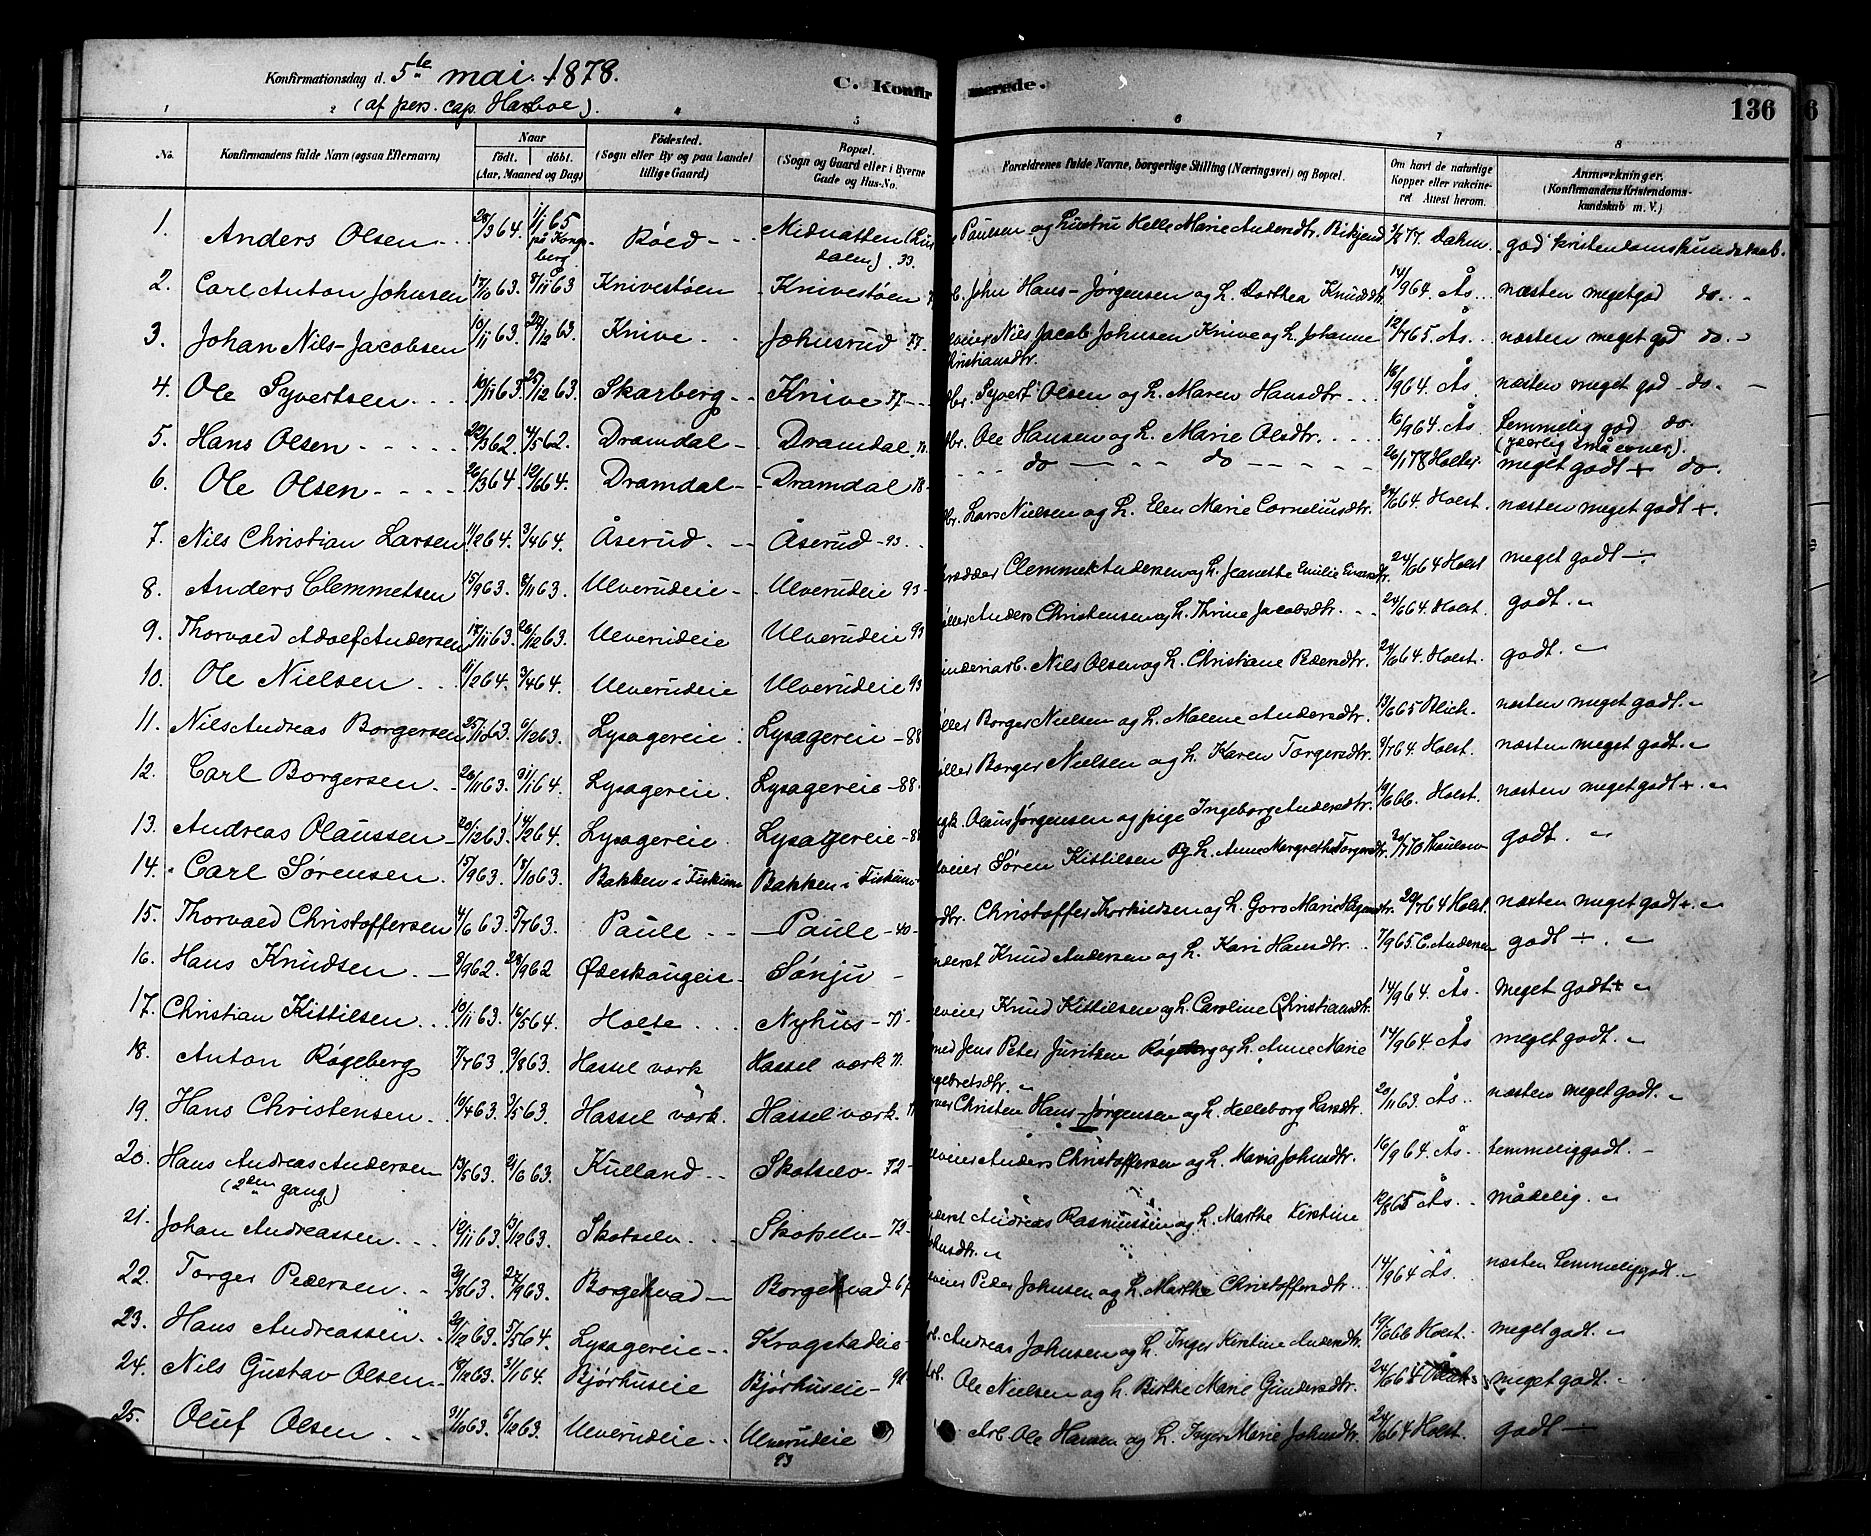 Konfirmationsdag d. 5te mai 1878.
(af pers. cap. Harboe).
C. Konfirmerede.
136
1 2 4 5 6 7 8
No. Konfirmandens fulde Navn (ogsaa Efternavn) Naar födt. döbt. (Aar, Maaned og Dag) Födested. (Sogn eller By og paa Landet tillige Gaard) Bopæl. (Sogn og Gaard eller i Byerne Gade og Hus-No. Forældrenes fulde Navne, borgerlige Stilling (Næringsvei) og Bopæl. Om havt de naturlige Kopper eller vakcineret Attest herom. Anmærkninger. (Konfirmandens Kristendomskundskab m. V.)
1. Anders Olsen 28/9 64. 1/1 65 på Kongsberg Röed Midnatten 33. Paulsen og Hustru Helle Marie Andersdtr. Bikjend 77. Dahm. god kristendomskundskab.
2. Carl Anton Johnsen 17/10 63. 8/11 63 Knivestöen Knivestöen John Hans-Jørgensen og H. Dorthea Knudsdtr. 14/9 64. Ås. næsten meget god do.
3. Johan Nils-Jacobsen 10/11 63. 27/12 63. Knive Johnsrud 77. Nils Jacob Johnsen Knive og H. Johanne Christiansdtr. 12/7 65. Ås. næsten meget god do.
4. Ole Syvertsen 10/11 63. 25/12 63. Skarberg Knive 77 Syvert Olsen og H. Maren Hansdtr. 16/9 64. Ås næsten meget god do.
5. Hans Olsen 22/3 62. 4/5 62. Dramdal Dramdal Ole Hansen og H. Marie Olsdtr. 16/9 64. Ås temmelig god do. (særlig små evner).
6. Ole Olsen 26/3 64. 12/6 64. Dramdal Dramdal 78 do do 26/1 78 Holter. meget godt + do.
7. Nils Christian Larsen 11/2 64. 3/4 64. Åserud. Åserud 93 Lars Nielsen og H. Elen Marie Corneliusdtr. 24/6 64. Holst. næsten meget godt +.
8. Anders Clemmetsen 15/9 63. 8/11 63. Ulverudeie Ulverudeie 93 Clemmet Andersen og H. Jeanette Emilie 24/6 64 Holst meget godt ÷
9. Thorvald Adolf Andersen 17/11 63. 26/12 63. Ulverudeie Ulverudeie 93 Anders Christensen og H. Thrine Jacobsdtr. 24/6 64. Holst. godt. "
10. Ole Nielsen 11/2 64. 3/4 64. Ulverudeie Ulverudeie 93 Nils Olsen og H. Christiane Pedersdtr. 24/6 64. Holst. godt. "
11. Nils Andreas Borgersen 25/10 63. 6/12 63. Lysagereie Lysagereie 88 Borger Nielsen og H. Malene Andersdtr. 13/6 65 Blich. næsten meget godt. "
12. Carl Borgersen 26/11 63. 31/1 64. Lysagereie. Lysagereie 88. Borger Nielsen og H. Karen Torgersdtr. 9/7 64. Holst. næsten meget godt. "
13. Andreas Olaussen 20/12 63. 14/2 64. Lysagereie Lysagereie 88 Olaus Jørgensen og pige Ingeborg Andersdtr. 19/6 66. Holst. næsten meget godt +. "
14. Carl Sørensen. 15/9 63. 18/10 63. Bakken i Fiskum Bakken i Fiskum Søren Kittilsen og H. Anne Margrethe Torgersdtr. 70 godt. "
15. Thorvald Christoffersen 4/6 63. 5/7 63. Paule Paule 40 Christoffer Thorkildsen og H. Goro Marie 20/7 64 Holst. næsten meget godt +. "
16. Hans Knudsen 9/9 62. 28/9 62 Ødeskougeie Sønju Knud Andersen og H. Kari Hansdtr. 7/9 65 C. Andersen godt ÷. "
17. Christian Kittilsen 10/11 63. 16/5 64. Holte Nyhus 71 Knud Kittilsen og H. Caroline Christiansdtr. 14/9 64. Ås meget godt + "
18. Anton Røgeberg 7/7 63. 9/8 63. Hassel værk Hassel værk 71. Jens Peter Juritsen Røgeberg og H. Anne Marie Engebretsdtr. 14/9 64. Ås meget godt. "
19. Hans Christensen 10/4 63. 3/5 63. Hassel værk. Hassel værk. Christen Hans-Jørgensen og H. Helleborg Larsdtr. 20/11 63. Ås næsten meget godt. "
20. Hans Andreas Andersen (2den gang) 13/5 63. 21/6 63. Kulland Skotselv 72 Anders Christoffersen og H. Maria Johnsdtr. 16/9 64. Ås temmelig godt.
21. Johan Andreassen 10/11 63. 13/12 63. Skotselv Skotselv 72 Andreas Rasmussen og H. Marthe Kirstine Johnsdtr. 12/8 65 Ås. mådelig. "
22. Torger Pedersen 29/8 63. 27/9 63. Borgekvad Borgekvad 67 Peter Johnsen og H. Marthe Christoffersdtr. 14/9 64 Ås. næsten temmelig godt.
23. Hans Andreassen 29/12 63. 5/5 64. Lysagereie Krogstadeie Andreas Johnsen og H. Inger Kirstine Andersdtr. 19/6 66 Holst. meget godt. "
24. Nils Gustav Olsen 18/12 63. 31/1 64. Bjørhuseie Bjørhuseie Ole Nielsen og H. Birthe Marie Gundersdtr. 24/6 64 meget godt.
25. Oluf Olsen 31/10 63. 6/12 63. Ulverudeie Ulverudeie 93 Arb. Ole Hansen og H. Inger Marie Johnsdtr. 24/6 64 Holst. godt